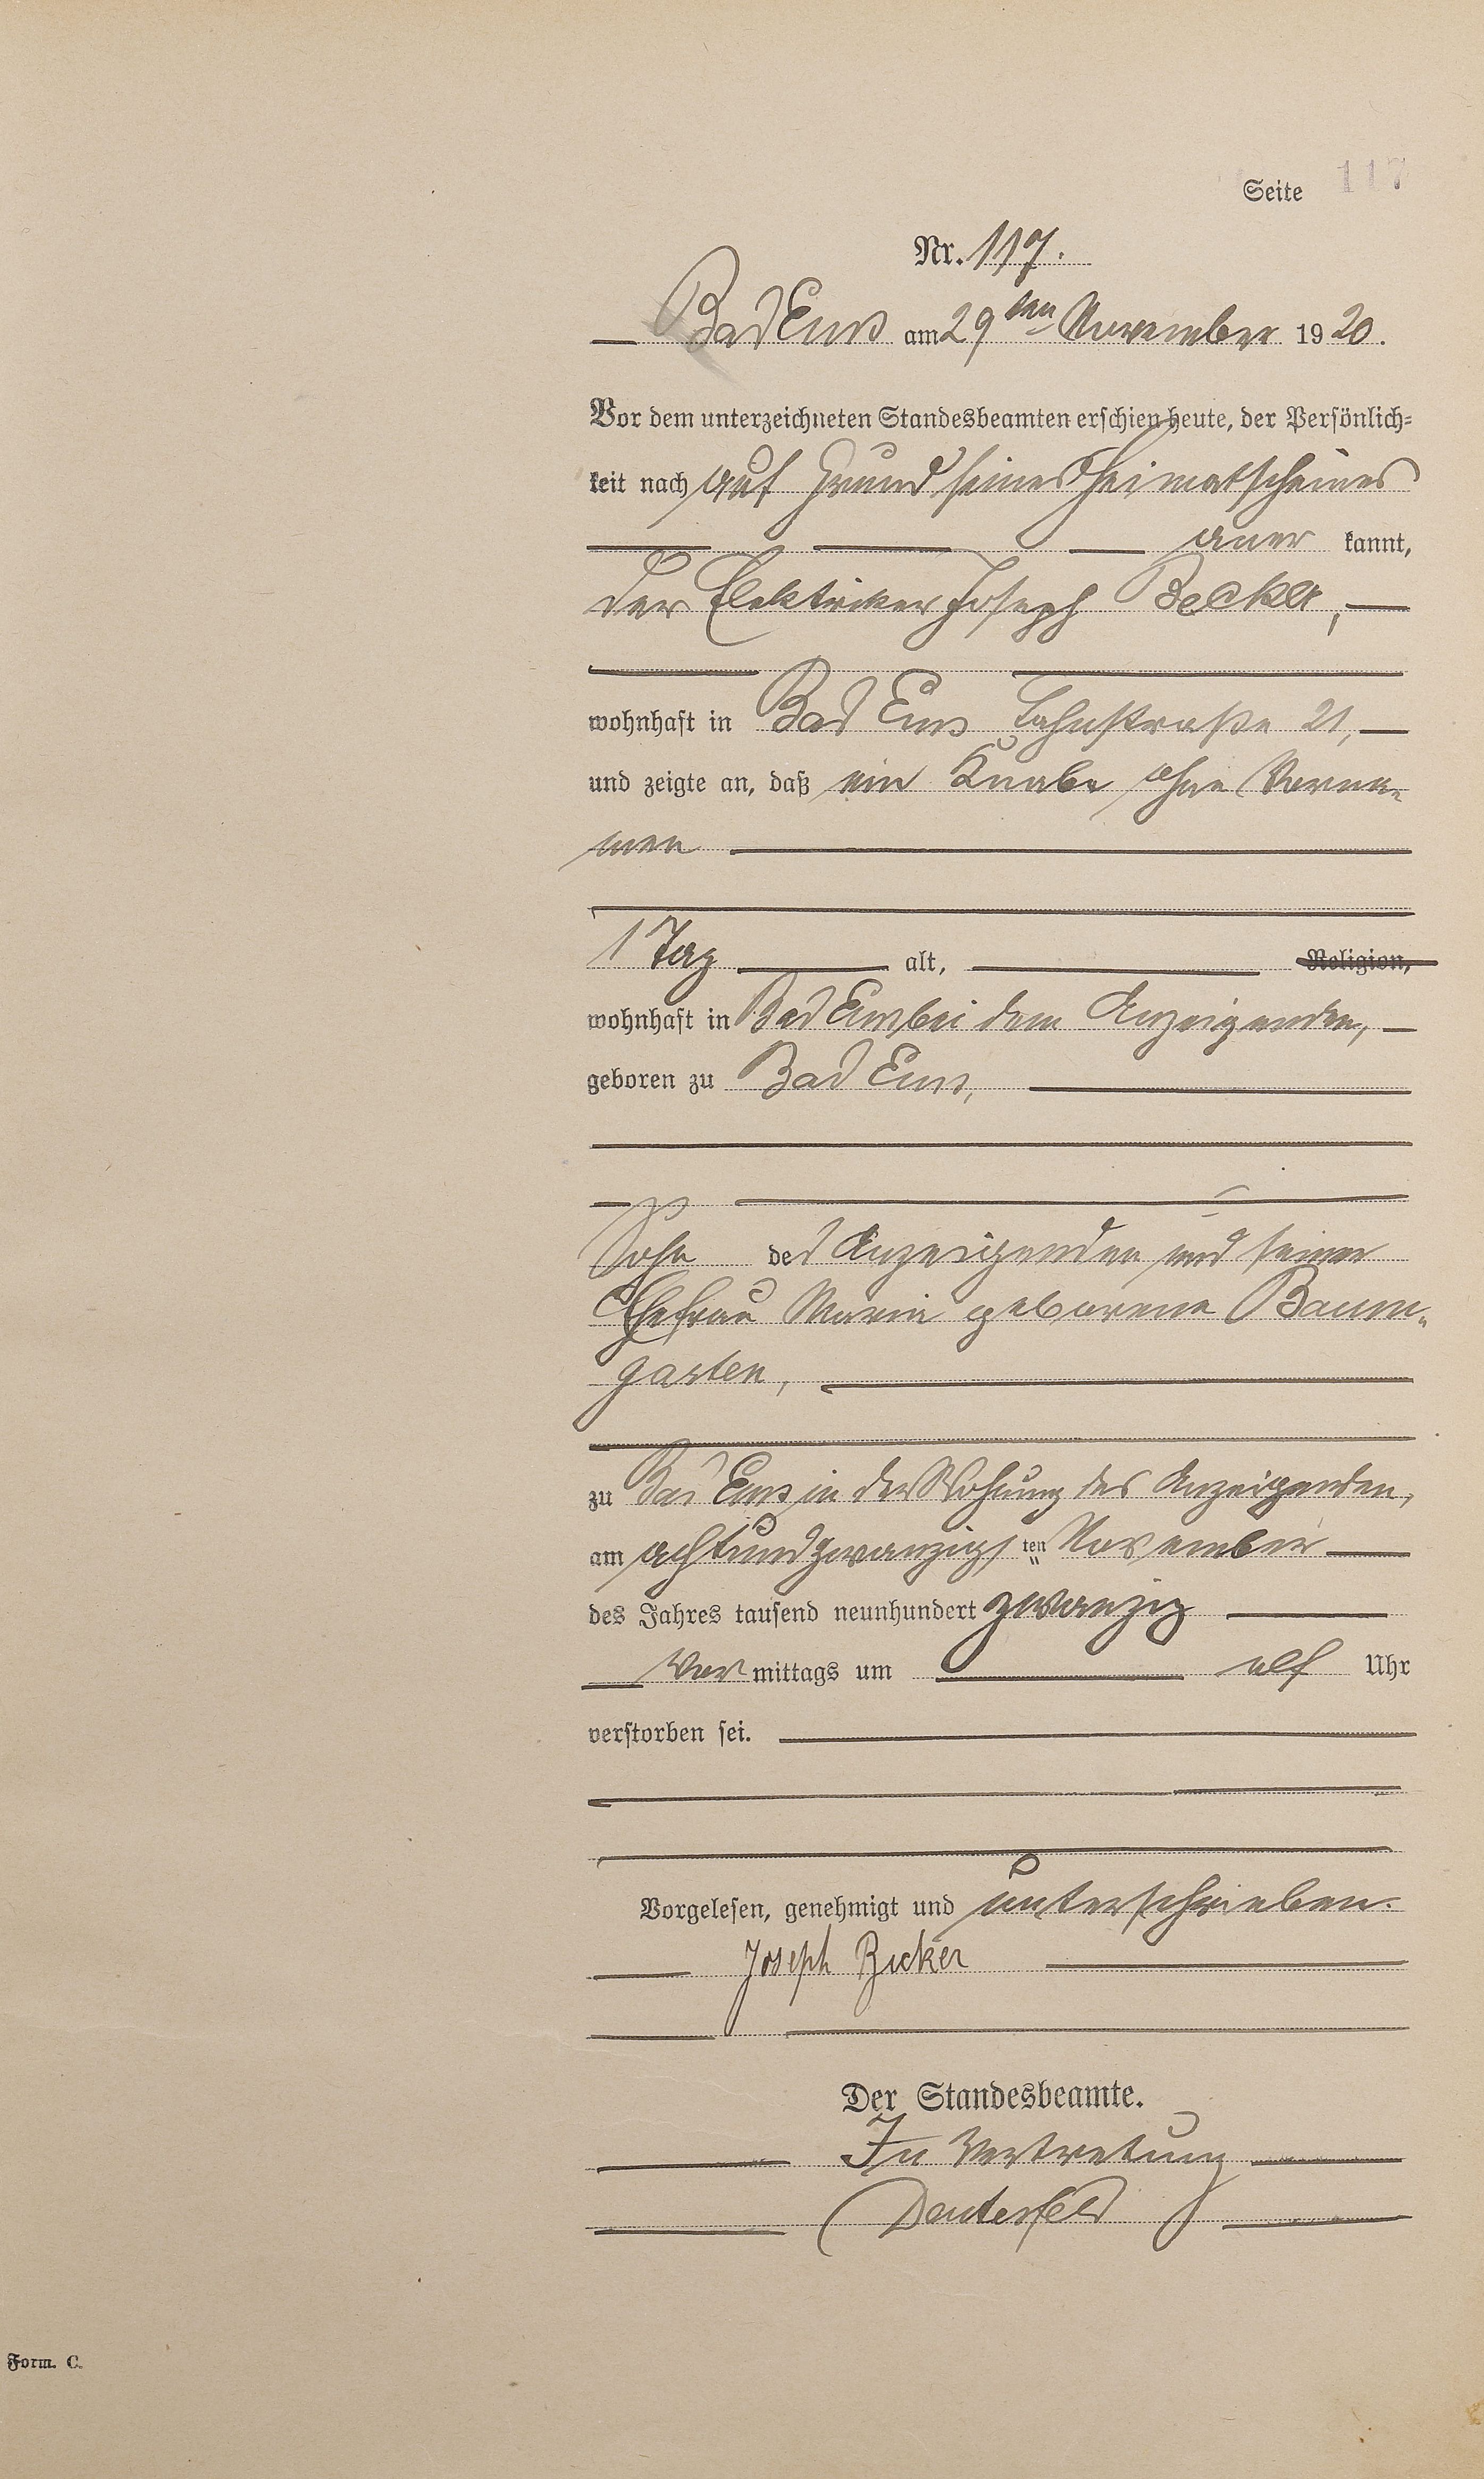 Seite 117
Nr. 117.
Bad Ems am 29ten November 1920.
Vor dem unterzeichneten Standesbeamten erschien heute, der Persönlich=
keit nach auf Grund seines Heimatscheines
aner kannt,
der Elektriker Joseph Becker,
wohnhaft in Bad Ems Lahnstraße 21,
und zeigte an, daß ein Knabe ohne Vorna-
men
1 Tag alt, Religion,
wohnhaft in Bad Ems bei dem Anzeigenden,
geboren zu Bad Ems,
Sohn des Anzeigenden und seiner
Ehefrau Maria geborene Baum-
garten,
zu Bad Ems in der Wohnung des Anzeigenden,
am achtundzwanzigsten November
des Jahres tausend neunhundert zwanzig
Vor mittags um elf Uhr
verstorben sei.
Vorgelesen, genehmigt und unterschrieben.
Joseph Becker
Der Standesbeamte.
In Vertretung
Form. C.